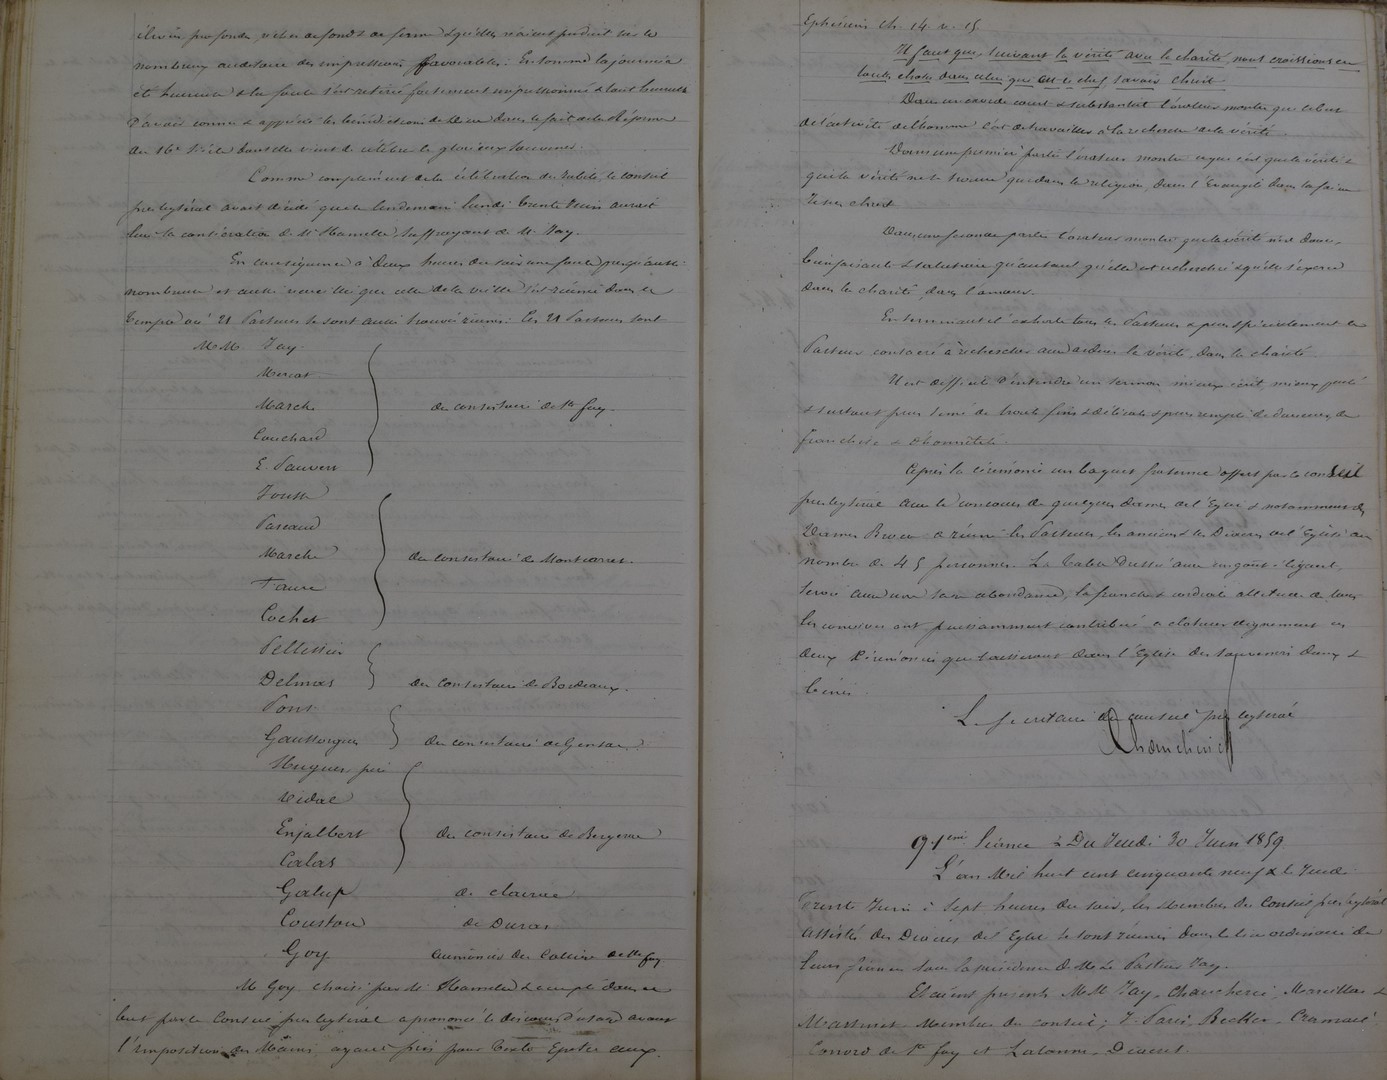 élevée profonde, riche de fond & de forme & qu'elles avaient produit sur le
nombreux auditoire des impressions favorables. En somme la journée a
été heureuse & la foule s'est retirée fortement impressionnée & tout heureuse
d'avoir connu & apprécié les bénédictions de Dieu dans le fait de la Réforme
du 16e Siècle dont elle vient de célébrer le glorieux souvenir.
Comme complément de la célébration du Jubilé, le conseil
presbytéral avait décidé que le lendemain lundi trente Juin aurait
lieu la consécration de Mr Hamelle, suffragant de M. Jay.
En conséquence à deux heures du soir une foule presqu'aussi
nombreuse et aussi que celle de la veille s'est réunie dans le
temple où 21 Pasteurs se sont aussi trouvés réunis. Ces 21 Pasteurs sont
MM. Jay
Marche
Couchard
E. Pauvert
du consistoire de Ste foy.
Marche
Faure
Cochet
du consistoire de Montcaret.
Pellissier
Delmas
du consistoire de Bordeaux.
Pons
Gaussorgues
du consistoire de Gensac.
Hugues père
Vidal
Enjalbert
Calas
du consistoire de Bergerac
Galup de Clairac
Coustou de Duras
Goy aumônier du Collège de Ste foy
M Goy choisi par M. Hamelle & accepté dans ce
but par le Conseil presbytéral a prononcé le discours d'usage avant
l'imposition des Mains, ayant pris pour texte Epître aux
Ephésiens ch. 14. v. 15
Il faut que, suivant la vérité avec la charité, nous croissions en
toutes choses dans celui qui est le chef savoir Christ
Dans un exorde court & substantiel l'orateur montre que le but
de l'activité de l'homme c'est de travailler à la recherche de la vérité.
Dans une première partie l'orateur montre ce que c'est que la vérité &
que la vérité ne se trouve que dans la religion, dans l'Evangile dans la foi en
Jésus Christ
Dans une seconde partie l'orateur montre que la vérité n'est donc
bienfaisante & salutaire qu'autant qu'elle est recherchée & qu'elle s'exerce
dans la charité, dans l'amour.
En terminant il exhorte tous les Pasteurs & plus spécialement le
Pasteur consacré à rechercher avec ardeur la vérité dans la charité.
Il est difficile d'entendre un sermon mieux écrit mieux parlé
& surtout plus semé de traits fins & délicats & plus rempli de de
franchise & d'honnêteté.
Après la cérémonie un banquet fraternel offert par le conseil
presbytéral avec le concours de quelques dames de l'Eglise & notamment des
Dames a réuni les Pasteurs, les anciens & les Diacres de l'Eglise au
nombre de 45 personnes. La table dressée avec un goût élégant,
servie avec une sage abondance, la franche & cordiale attitude de tous
les convives ont puissamment contribué à clôturer dignement ces
deux cérémonies qui laisseront dans l'Eglise des souvenirs doux &
bénis.
Le secrétaire du conseil presbytéral
91eme Séance : Du Jeudi 30 Juin 1859
L'an Mil huit cent cinquante neuf & le Jeudi
Trente Juin à Sept heures du soir, les Membres du Conseil presbytéral
assistés des Diacres de l'Eglise se sont réunis dans le lieu ordinaire de
leurs séances sous la présidence de M. Le Pasteur Jay.
Etaient présents MM Jay, Mareilles &
Massinet Membres du conseil; J. Paris, Becker,
de Ste foy et Lalanne, Diacres.